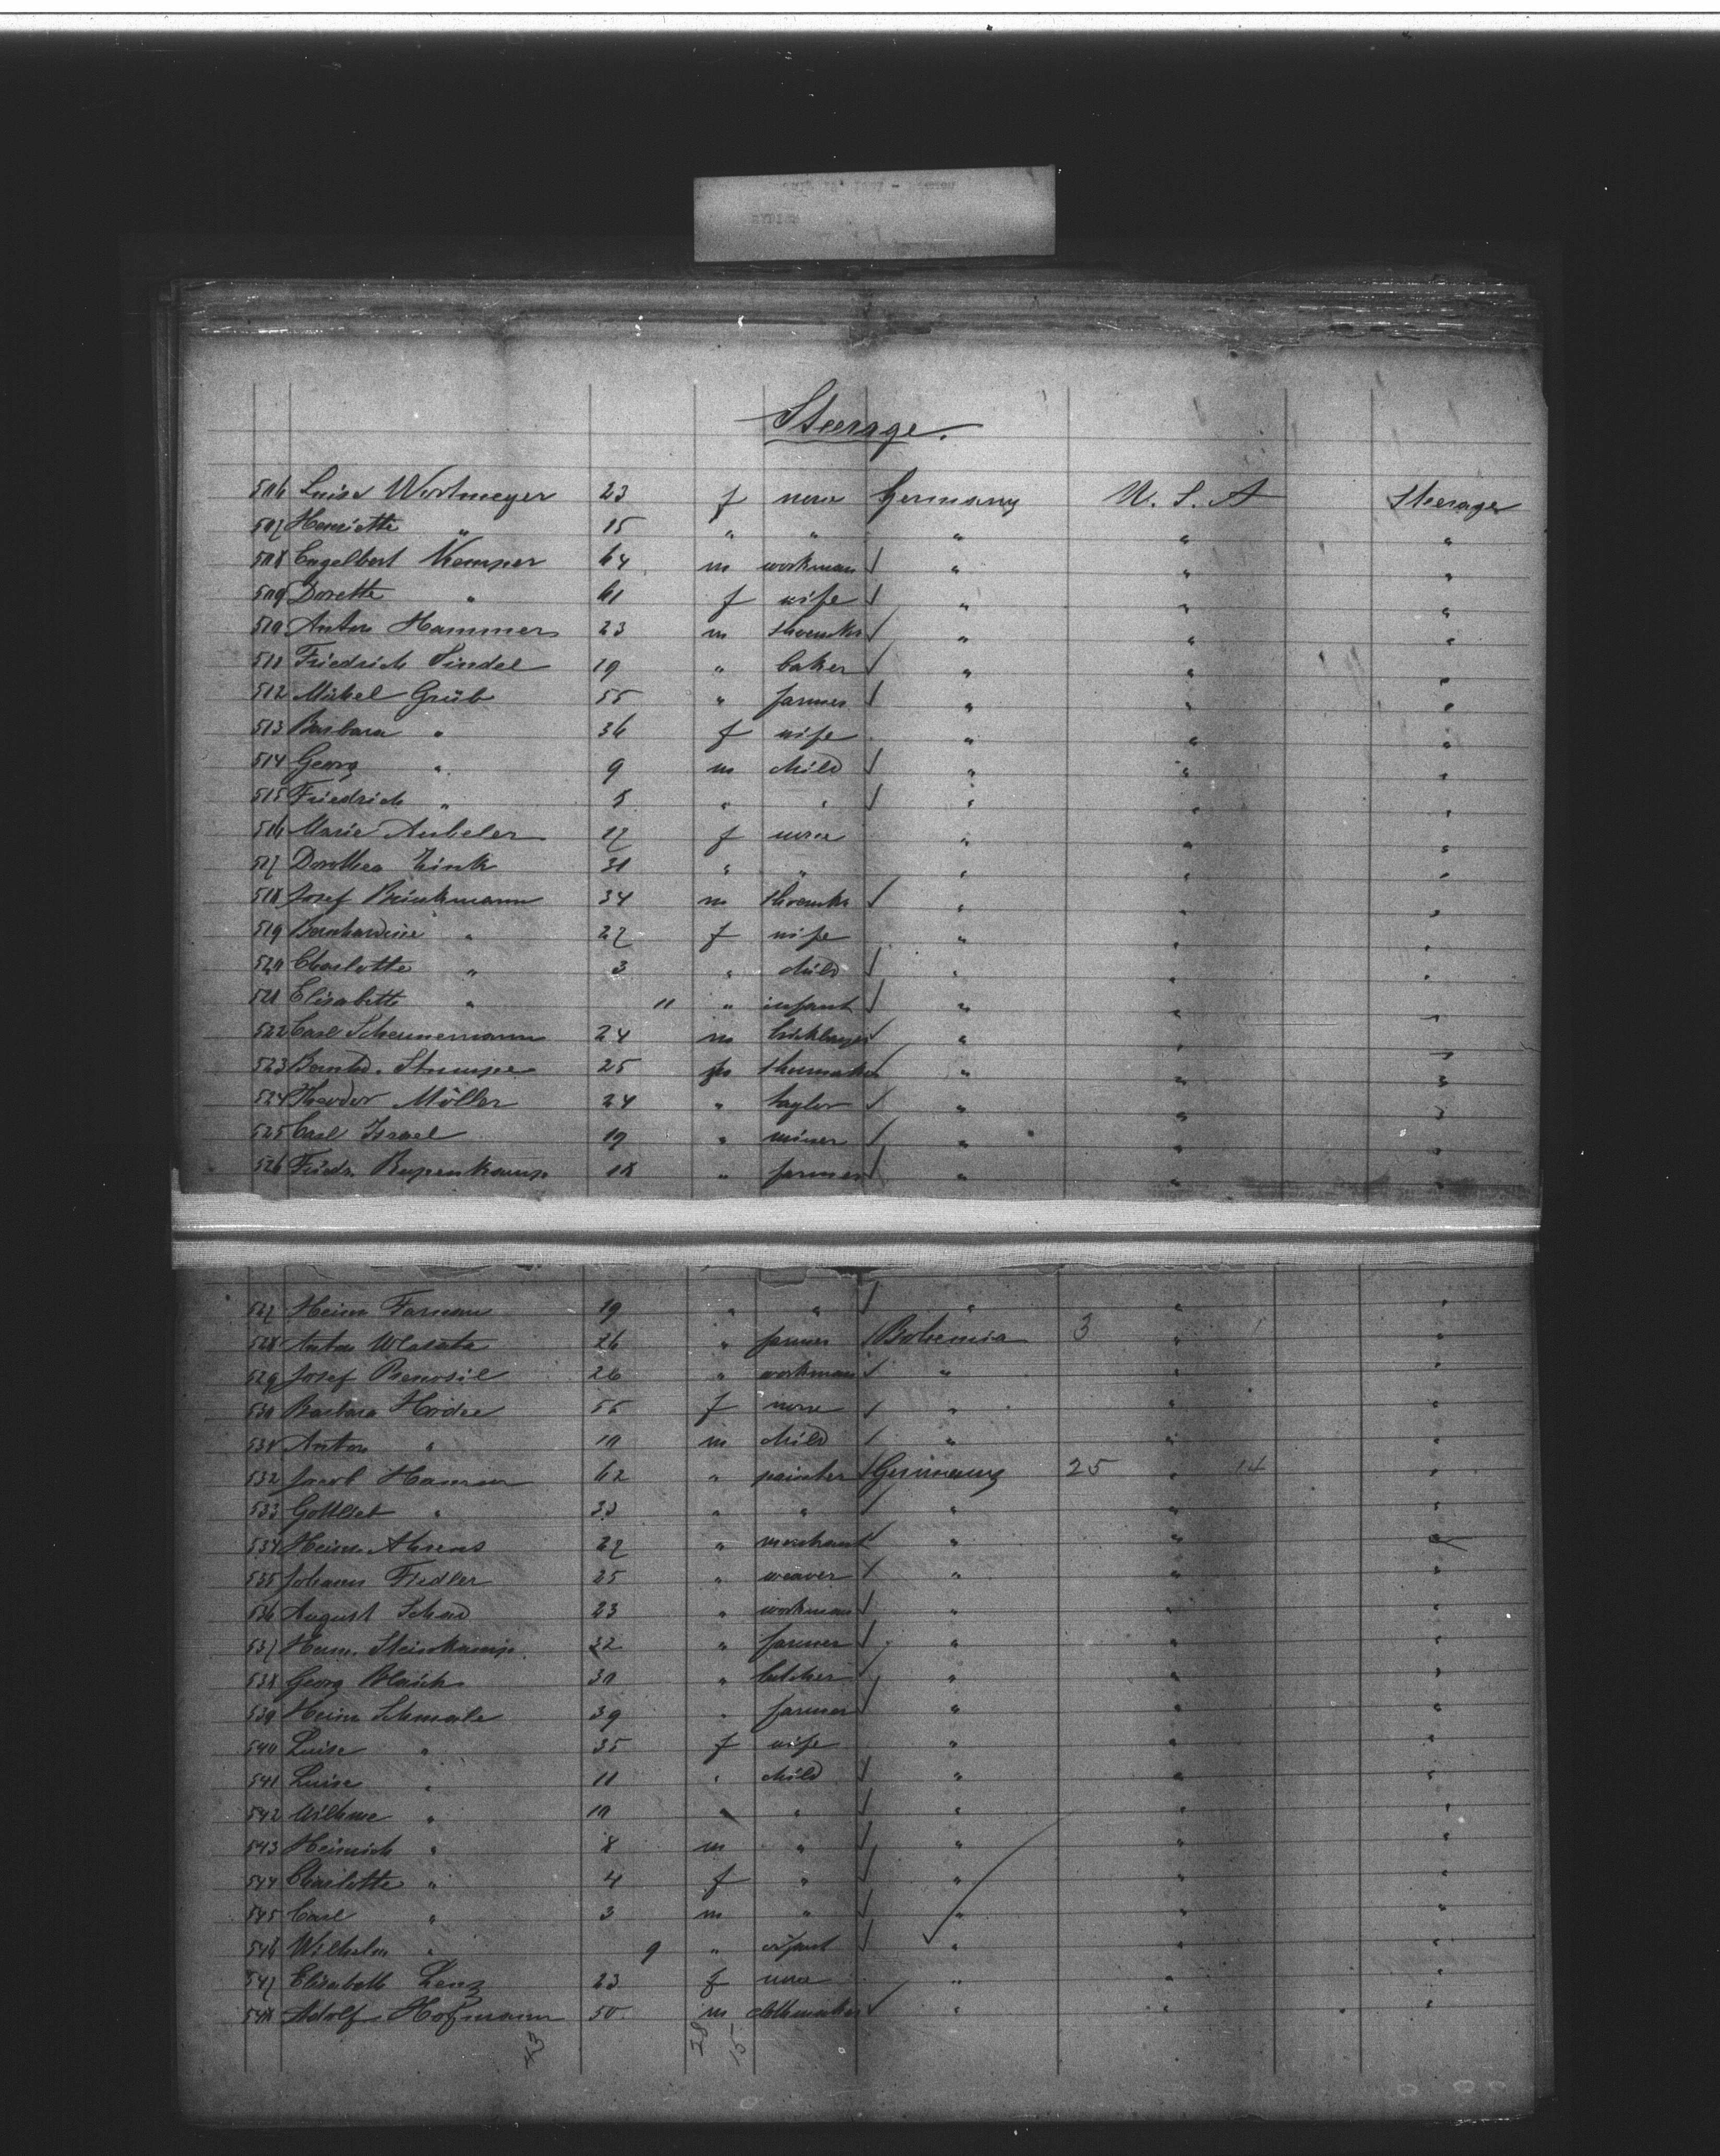 Steerage.
506 Luise Wortmeyer 23 f none Germany U. S. A Steerage
507 Henriette " 15 " " " " "
508 Engelbert Kemper 64 m workman " " "
509 Dorette " 61 f wife " " "
510 Anton Hammer 23 m shoemkr " " "
511 Friedrich 19 " baker " " "
512 Michel Grüb 55 " farmer " " "
513 Barbara " 36 f wife " " "
514 Georg " 9 m child " " "
515 Friedrich " 5 " " " " "
516 Marie Aubeler 17 f none " " "
517 Dorothea Zink 31 " " " " "
518 Josef Brinkmann 34 m shoemkr " " "
519 Bernhardine " 27 f wife " " "
520 Charlotte " 3 " child " " "
521 Elisabeth " 11 " infant " " "
522 Carl Scheunemann 24 m bricklayer " " "
523 Bernhd. Stumpe 25 m shoemaker " " "
524 Theodor Möller 24 " taylor " " "
525 Carl Israel 19 " miner " " "
526 Friedr. Rupenkamp 18 " farmer " " "
527 Heinr. 19 " " " " "
528 Anton Wlasata 26 " farmer Bohemia 3 " "
529 Josef Benosil 26 " workman " " "
530 Barbara 55 f none " " "
531 Anton " 10 m child " " "
532 Jacob Hammer 62 " painter Germany 25 " 14 "
533 Gottlieb " 23 " " " " "
534 Heinr. Ahrens 27 " merchant " " "
535 Johann Fiedler 25 " weaver " " "
536 August Schad 23 " workman " " "
537 Herm. Steinkamp 32 " farmer " " "
538 Georg Blaich 30 " butcher " " "
539 Heinr. Schmale 39 " farmer " " "
540 Luise " 35 f wife " " "
541 Luise " 11 " child " " "
542 Wilhme " 10 " " " " "
543 Heinrich " 8 m " " " "
544 Charlotte " 4 f " " " "
545 Carl " 3 m " " " "
546 Wilhelm " 9 " infant " " "
547 Elisabeth Lenz 23 f none " " "
548 Adolf Hofmann 50 m clothmaker " " "
43 28 15